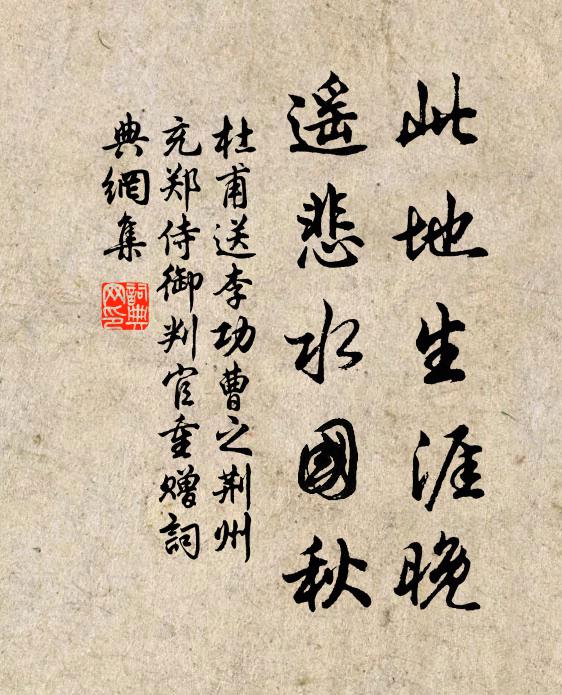 此地生涯晚
遥悲水國秋
杜甫送李功曹之荆州
充郑侍御判官重赠詞
典網集
詞典
网印